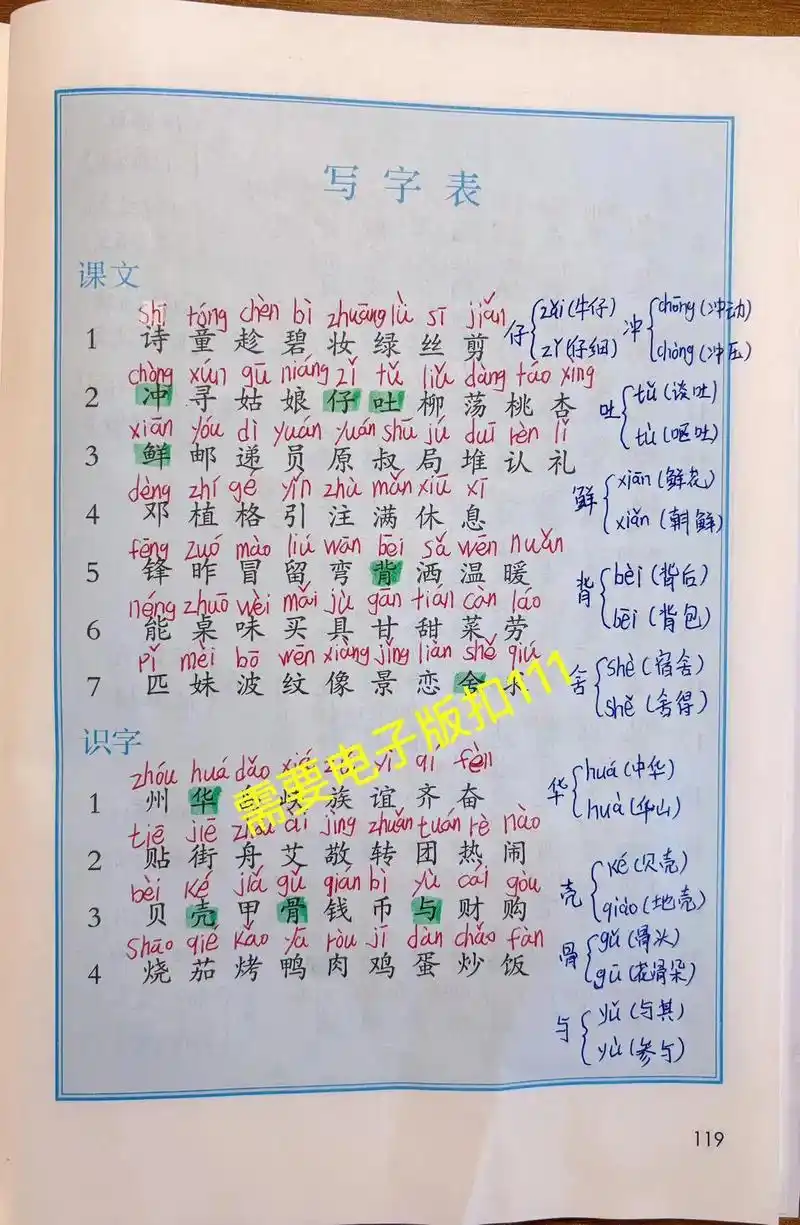 写字表
课文
shī tóng chèn bì zhuāng lǜ sī jiǎn
1 诗 童 趁 碧 妆 绿 丝 剪
chòng xún gū niáng zǐ tǔ liǔ dàng táo xìng
2 冲 寻 姑 娘 仔 吐 柳 荡 桃 杏
xiān yóu dì yuán yuán shū jú duī rèn lǐ
3 鲜 邮 递 员 原 叔 局 堆 认 礼
dèng zhí gé yǐn zhù mǎn xiū xī
4 邓 植 格 引 注 满 休 息
fēng zuó mào liú wān bēi sǎ wēn nuǎn
5 锋 昨 冒 留 弯 背 洒 温 暖
néng zhuō wèi mǎi jù gān tián cài láo
6 能 桌 味 买 具 甘 甜 菜 劳
pǐ mèi bō wén xiàng jǐng liàn shě qiú
7 匹 妹 波 纹 像 景 恋 舍
识字
zhóu huá dǎo xiá yì qí fèn
1 州 华 族 谊 齐 奋
tiē jiē zhōu ài jìng zhuǎn tuán rè nào
2 贴 街 舟 艾 敬 转 团 热 闹
bèi ké jiǎ gǔ qián bì yǔ cái gòu
3 贝 壳 甲 骨 钱 币 与 财 购
shāo qié kǎo yā ròu jī dàn chǎo fàn
4 烧 茄 烤 鸭 肉 鸡 蛋 炒 饭
仔 zǎi (牛仔)
zǐ (仔细)
冲 chōng (冲动)
chòng (冲压)
吐 tǔ (谈吐)
tù (呕吐)
鲜 xiān (鲜花)
xiǎn (朝鲜)
背 bèi (背后)
bēi (背包)
舍 shè (宿舍)
shě (舍得)
华 huá (中华)
huà (华山)
壳 ké (贝壳)
qiào (地壳)
骨 gǔ (骨头)
gū (花骨朵)
与 yǔ (与其)
yù (参与)
需要电子版扣111
119